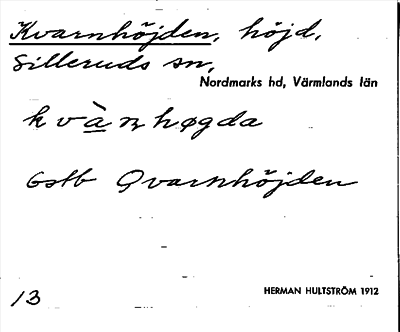 Kvarnhöjden, höjd,
Silleruds sn,
Nordmarks hd, Värmlands län
kvà̲rn̥høgda
Gstb Qvarnhöjden
13
HERMAN HULTSTRÖM 1912